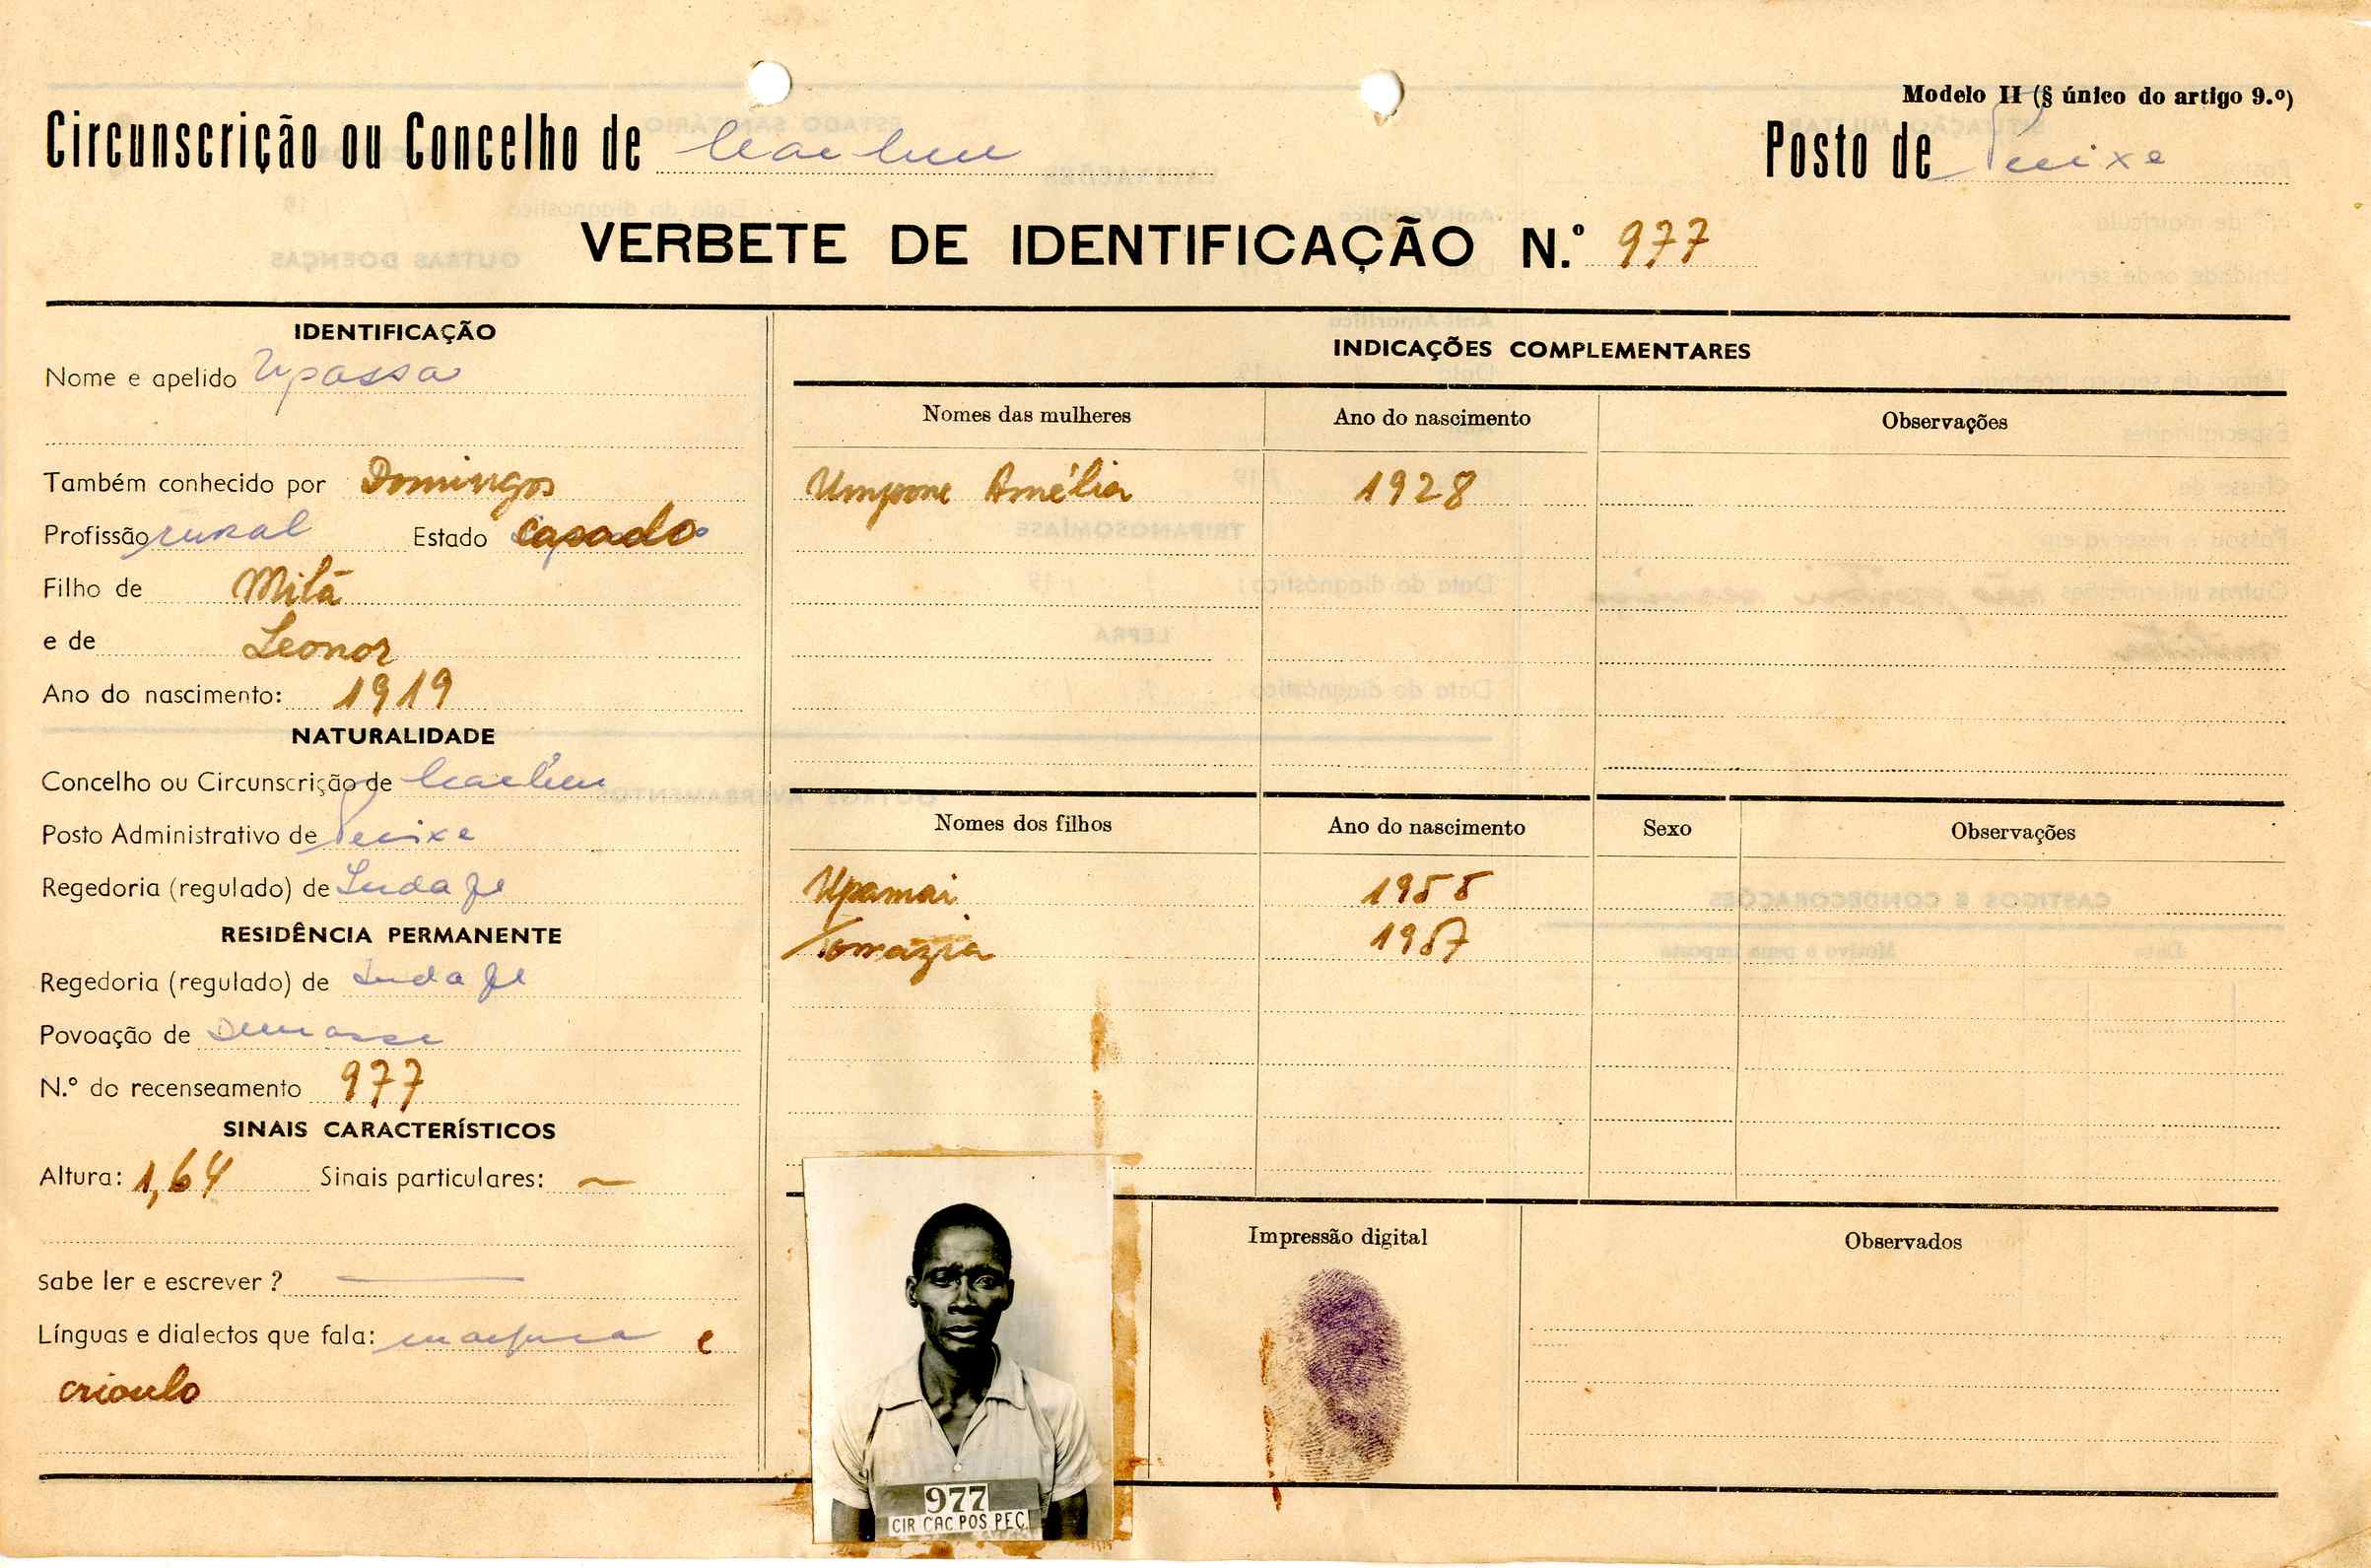 Modelo II (§ único do artigo 9.º)
Circunscrição ou Concelho de Cacheu
Posto de Pecixe
VERBETE DE IDENTIFICAÇÃO N.º 977
IDENTIFICAÇÃO
Nome e apelido Upassa
Também conhecido por Domingos
Profissão rural Estado casado
Filho de Mitá
e de Leonor
Ano do nascimento: 1919
NATURALIDADE
Concelho ou Circunscrição de Cacheu
Posto Administrativo de Pecixe
Regedoria (regulado) de
RESIDÊNCIA PERMANENTE
Regedoria (regulado) de
Povoação de
N.º do recenseamento 977
SINAIS CARACTERÍSTICOS
Altura: 1,64 Sinais particulares: ~
Sabe ler e escrever ? —
Línguas e dialectos que fala: e
crioulo
INDICAÇÕES COMPLEMENTARES
Nomes das mulheres Ano do nascimento Observações
Umpone Amélia 1928
Nomes dos filhos Ano do nascimento Sexo Observações
Upamai 1955
Tomázia 1957
Impressão digital
Observados
977
CIR CAC POS PEC